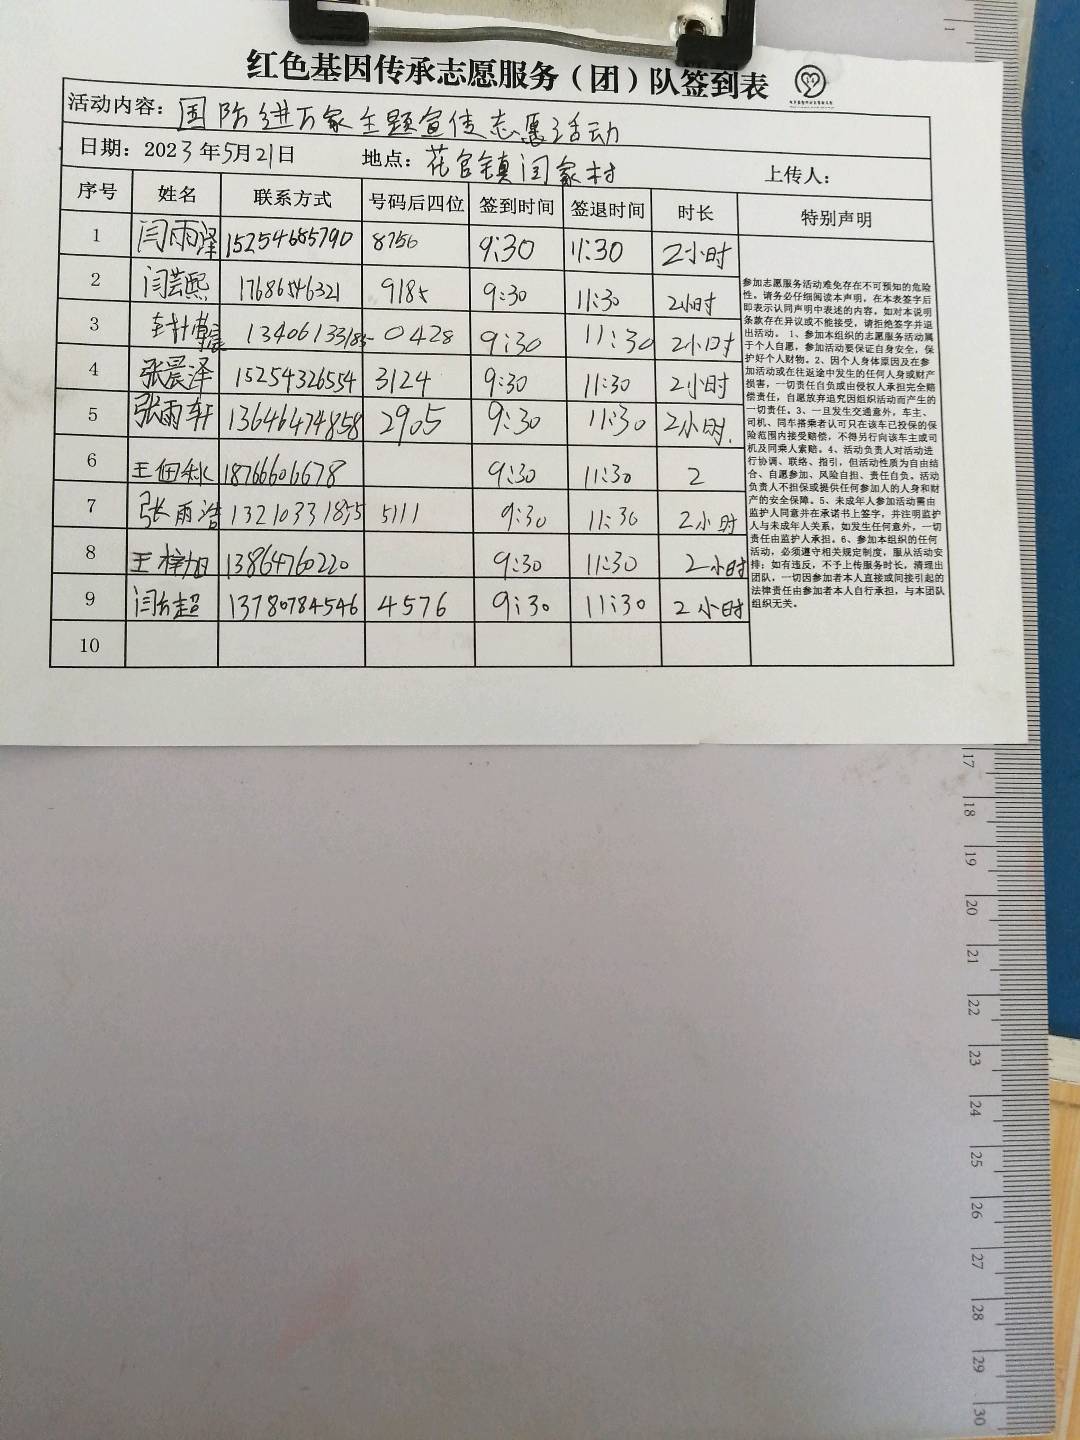 红色基因传承志愿服务（团）队签到表
活动内容：国防进万家主题宣传志愿活动
日期：2023年5月21日 地点：花官镇闫家村 上传人：
序号 姓名 联系方式 号码后四位 签到时间 签退时间 时长 特别声明
1 闫雨泽 15254685790 8756 9:30 11:30 2小时
2 闫芸熙 17686546321 9185 9:30 11:30 2小时
3 13406133185 0428 9:30 11:30 2小时
4 张晨泽 15254326554 3124 9:30 11:30 2小时
5 张雨轩 13646474858 2905 9:30 11:30 2小时.
6 王佃秋 18766606678 9:30 11:30 2
7 张雨浩 13210331855 5111 9:30 11:30 2小时
8 王梓旭 13864760220 9:30 11:30 2小时
9 闫超 13780784546 4576 9:30 11:30 2小时
10
参加志愿服务活动难免存在不可预知的危险
性。请务必仔细阅读本声明，在本表签字后
即表示认同声明中表述的内容。如对本说明
条款存在异议或不能接受，请拒绝签字并退
出活动。1、参加本组织的志愿服务活动属
于个人自愿，参加活动要保证自身安全，保
护好个人财物。2、因个人身体原因及在参
加活动或在往返途中发生的任何人身或财产
损害，一切责任自负或由侵权人承担完全赔
偿责任，自愿放弃追究因组织活动而产生的
一切责任。3、一旦发生交通意外，车主、
司机、同车搭乘者认可只在该车已投保的保
险范围内接受赔偿，不得另行向该车主或司
机及同乘人索赔。4、活动负责人对活动进
行协调、联络、指引，但活动性质为自由结
合、自愿参加、风险自担、责任自负。活动
负责人不担保或提供任何参加人的人身和财
产的安全保障。5、未成年人参加活动需由
监护人同意并在承诺书上签字，并注明监护
人与未成年人关系，如发生任何意外，一切
责任由监护人承担。6、参加本组织的任何
活动，必须遵守相关规定制度，服从活动安
排；如有违反，不予上传服务时长，清理出
团队，一切因参加者本人直接或间接引起的
法律责任由参加者本人自行承担，与本团队
组织无关。
1
17
18
19
20
21
22
23
24
25
26
27
28
29
30